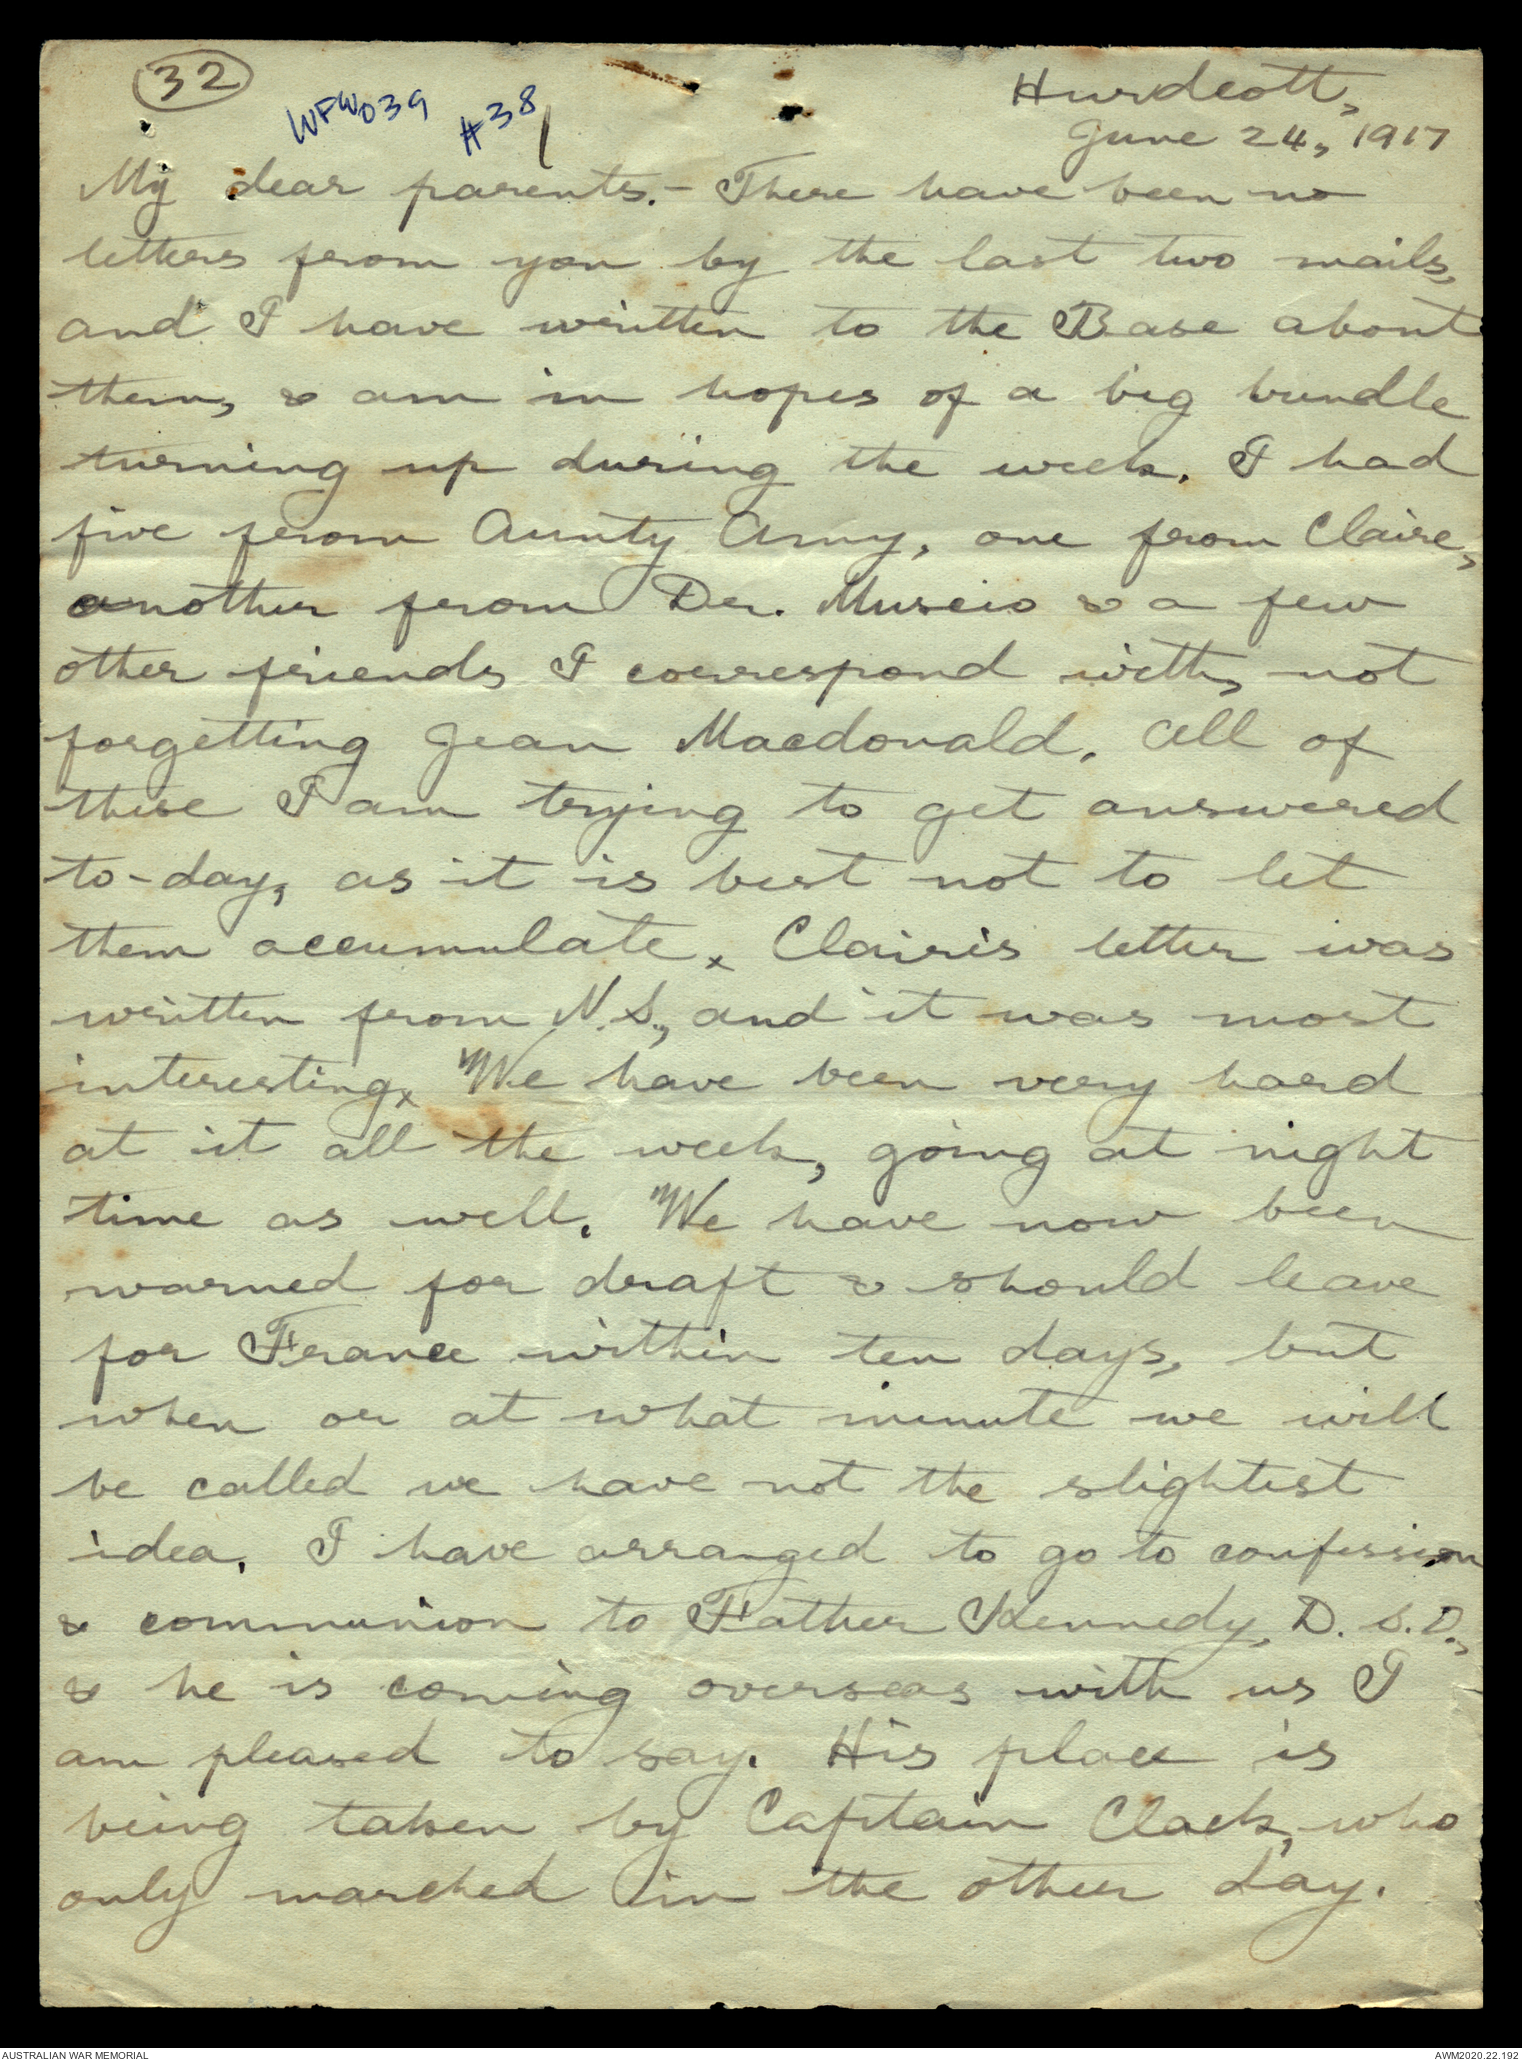 32
WFW039 #38
Hurdcott,
June 24, 1917
My dear parents.- There have been no
letters from you by the last two mails,
and I have written to the Base about
them, & am in hopes of a big bundle
turning up during the week. I had
five from Aunty Amy, one from Claire,
another from Dr. Muscio & a few
other friends I correspond with, not
forgetting Jean Macdonald. All of
these I am trying to get answered
to-day, as it is best not to let
them accumulate. Claire's letter was
written from N.S., and it was most
interesting. We have been very hard
at it all the week, going at night
time as well. We have now been
warned for draft & should leave
for France within ten days, but
when or at what minute we will
be called we have not the slightest
idea. I have arranged to go to confession
& communion to Father Kennedy, D.S.O.,
& he is coming overseas with us I
am pleased to say. His place is
being taken by Captain Clack, who
only marched in the other day.
AUSTRALIAN WAR MEMORIAL
AWM2020.22.192